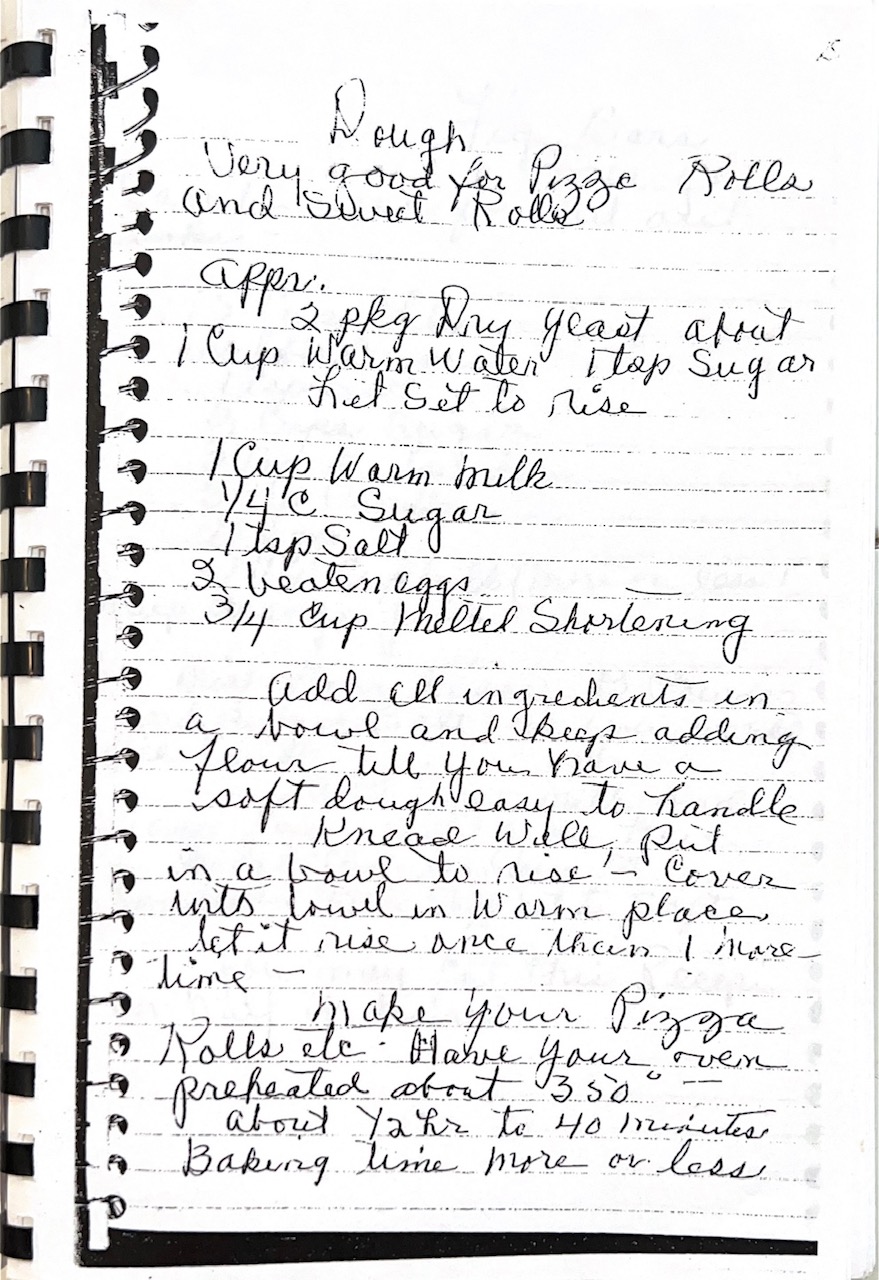 Dough
Very good for Pizza Rolls
and Sweet Rolls
appr.
2 pkg Dry yeast about
1 Cup Warm Water 1 tsp Sugar
Let Set to rise
1 Cup Warm milk
1/4 C Sugar
1 tsp Salt
2 beaten eggs
3/4 Cup Melted Shortening
add all ingredients in
a bowl and keep adding
flour till you have a
soft dough easy to handle
Knead Well, Put
in a bowl to rise - Cover
towel in Warm place
let it rise once than 1 more
time -
make your Pizza
Rolls etc. Have your oven
preheated about 350° -
about 1/2 hr to 40 minutes
Baking time more or less